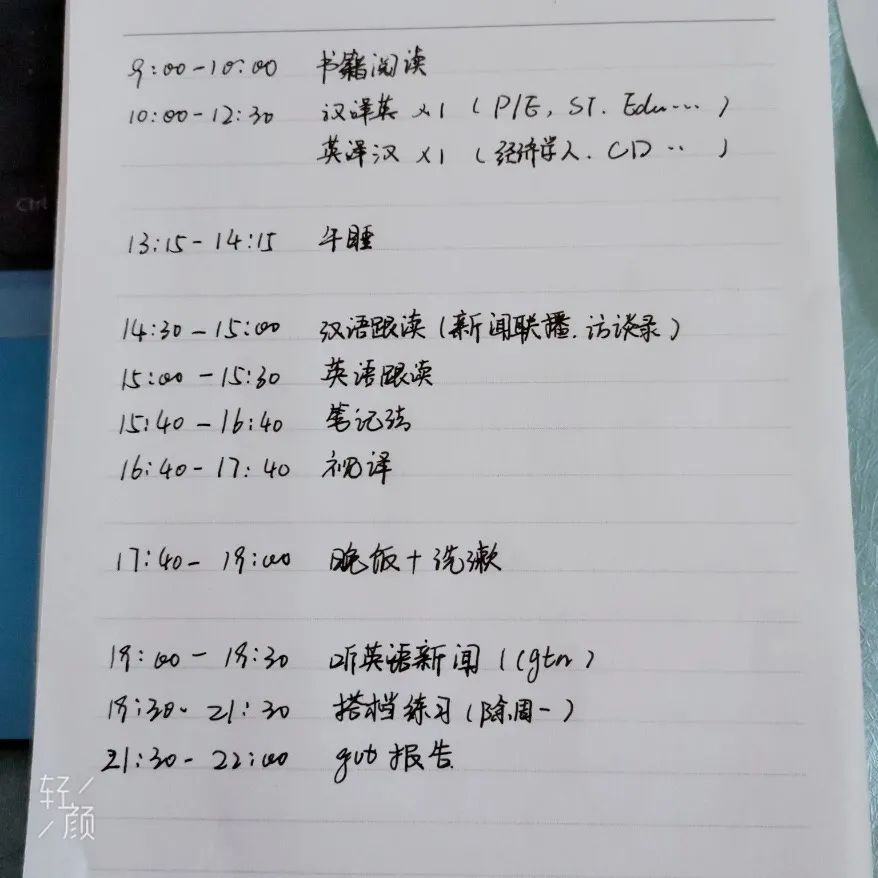 Ctrl
9:00-10:00 书籍阅读
10:00-12:30 汉译英 x1 (P/E, ST. Edu...)
英译汉 x1 (经济学人. CD ..)
13:15-14:15 午睡
14:30-15:00 汉语跟读(新闻联播.访谈录)
15:00-15:30 英语跟读
15:40-16:40 笔记法
16:40-17:40 视译
17:40-19:00 晚饭+洗漱
19:00-19:30 听英语新闻(Cgtn)
19:30-21:30 搭档练习(除周一)
21:30-22:00 gvt报告
轻颜